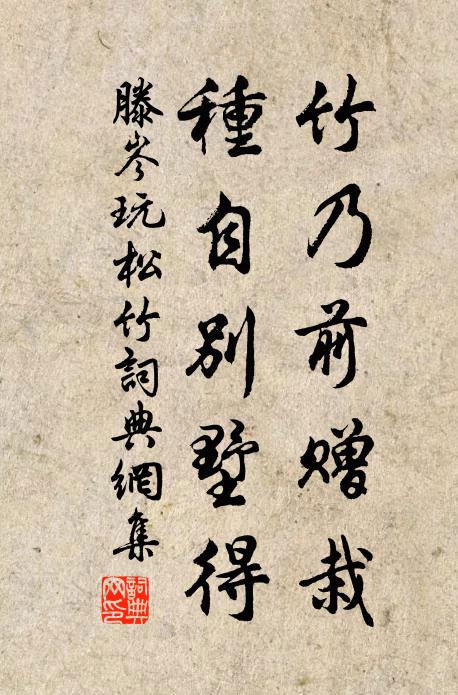 竹乃前贈栽
種自別墅得
滕岑玩松竹詞典網集
詞典網印